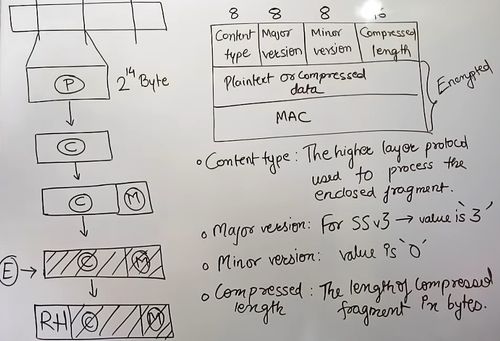 8 8 8 16
Content type
Major version
Minor version
Compressed length
Plaintext or compressed data
MAC
Encrypted
P
2^14 Byte
C
C M
E C M
RH C M
Content type: The higher layer protocol
used to process the
enclosed fragment.
Major version: For SSv3 → value is '3'
Minor version: value is '0'
Compressed length : The length of compressed
fragment in bytes.